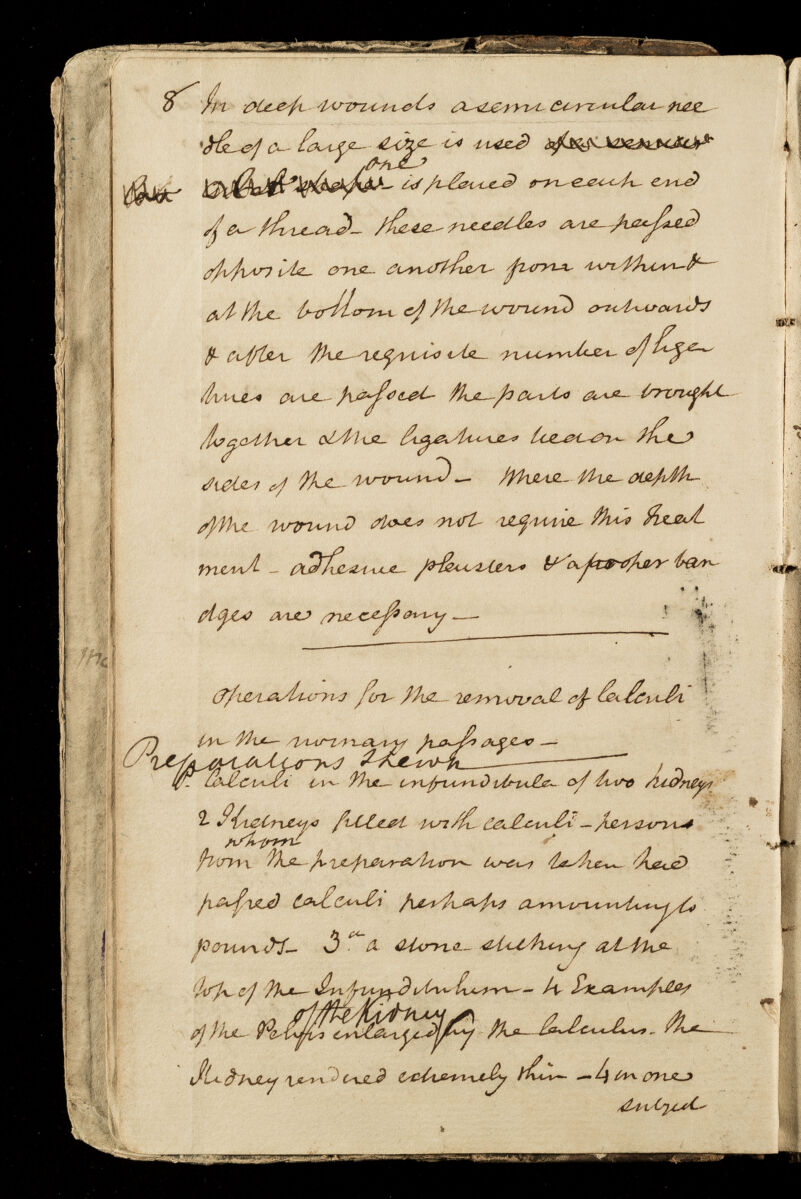 8 In deep wounds a semicircular nee
dle of a large size is used
one is placed on each end
of a thread – these needles are paſsed
opposite one another from within &
at the bottom of the wound outwards
& after the requisite number of liga
tures are paſsed the parts are brought
together & the ligatures tied on the
sides of the wound – Where the depth
of the wound does not require this treat
ment – adhesive plaisters & a prosper ban
dges are neceſsary —
Operations for the removal of Calculi
in the urinary paſsages –
Preparations Shewn
Calculi in the infundibula of two kidneys
2 Kidneys filled with calculi – person
whom
from the preparation was taken had
paſsed calculi perhaps amounting to
pounds – 3 a stone sticking at the
top of the Infundibulum – 4 Examples
of the Kidney
of the Pelvis enlarged by the Calculus. The
Kidney rendered extremely thin – 4 in one
subject